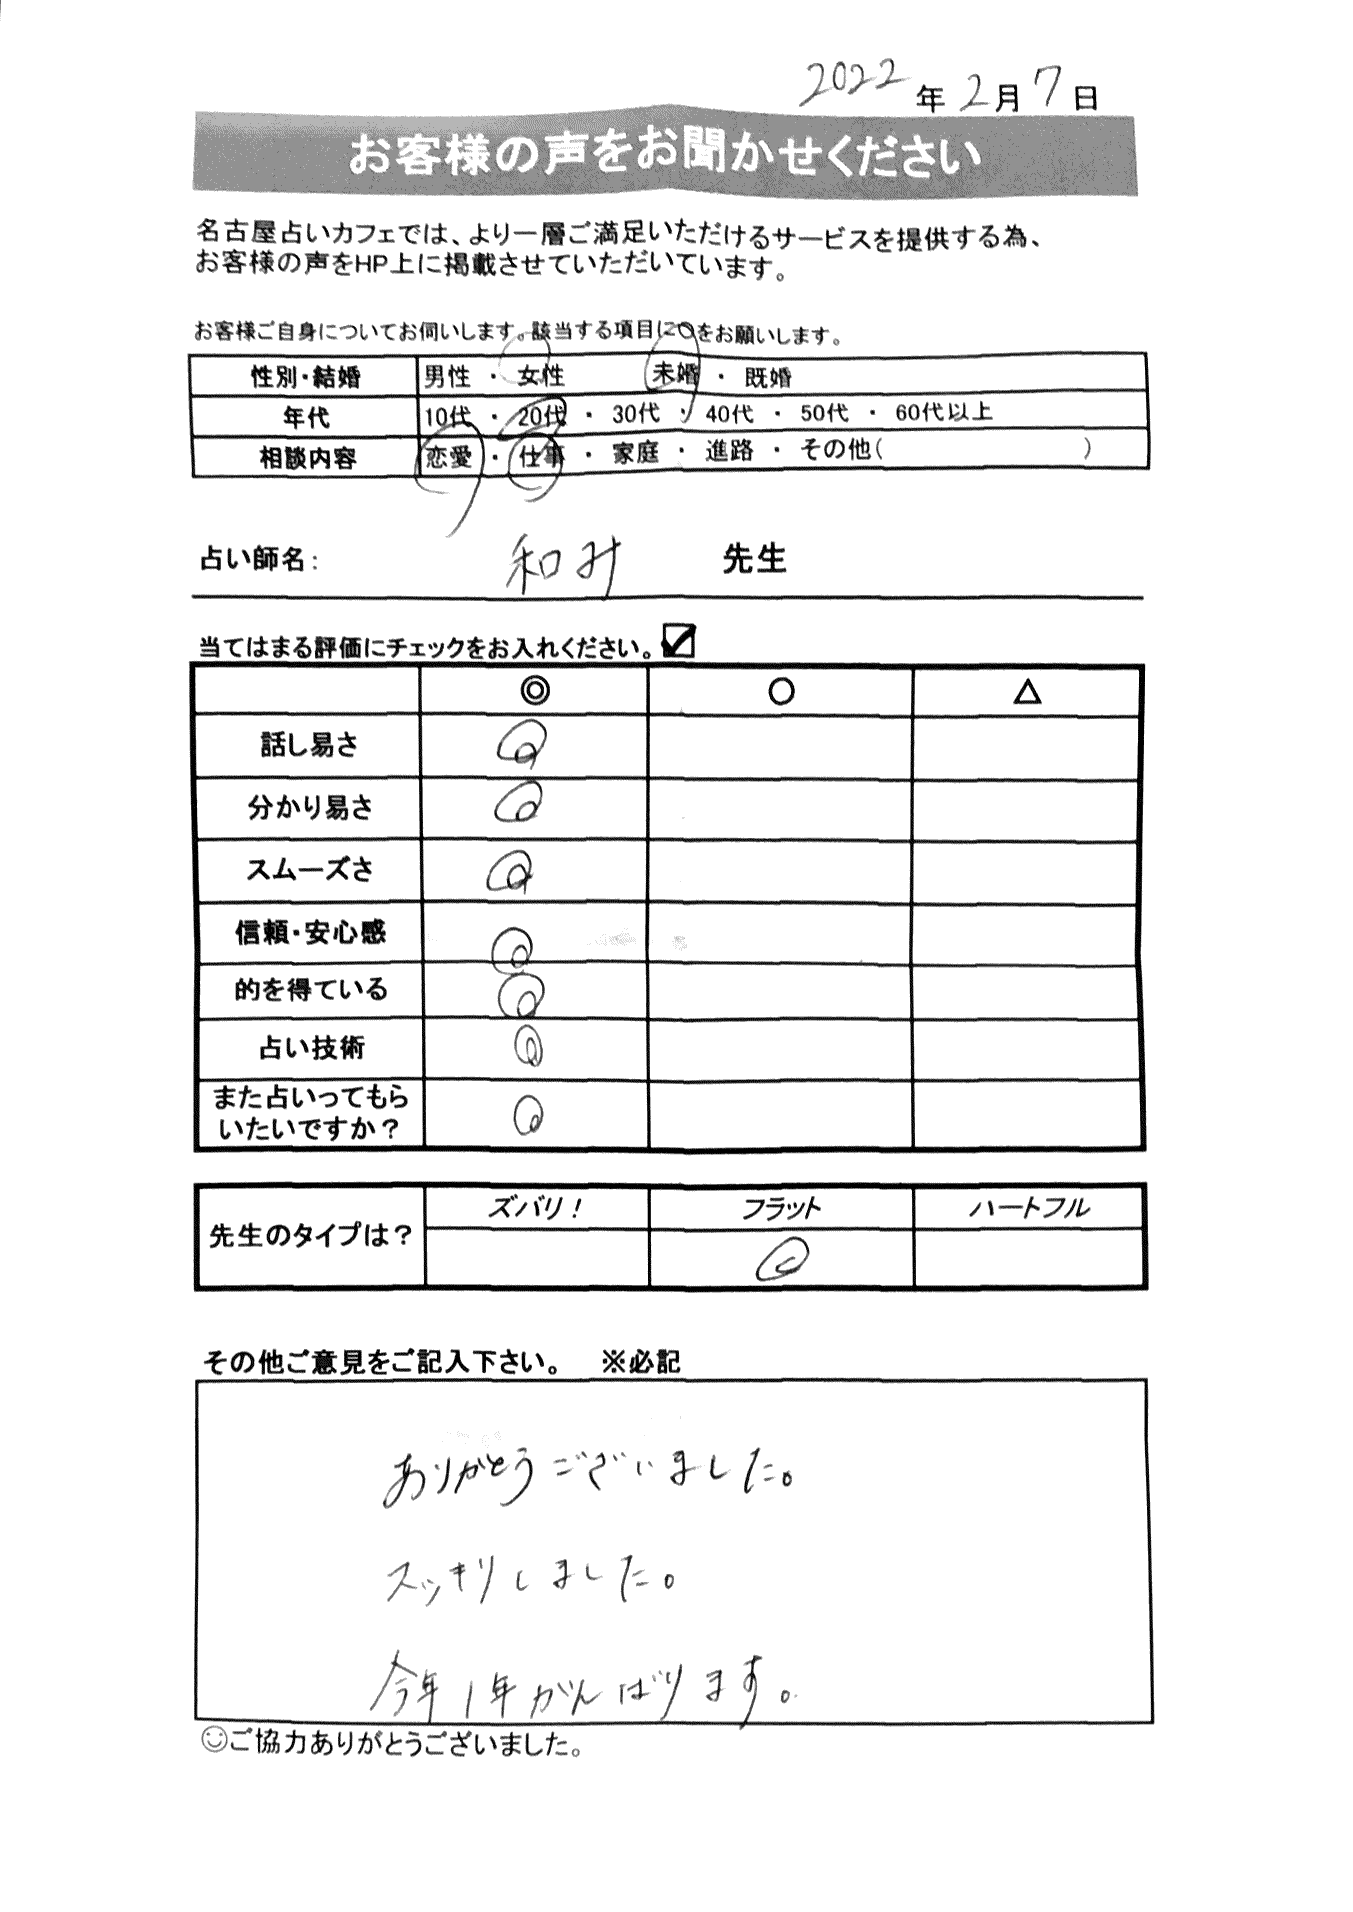 2022年2月7日
お客様の声をお聞かせください
名古屋占いカフェでは、より一層ご満足いただけるサービスを提供する為、
お客様の声をHP上に掲載させていただいています。
お客様ご自身についてお伺いします。該当する項目に○をお願いします。
性別・結婚 男性 ・ 女性 未婚 ・ 既婚
年代 10代 ・ 20代 ・ 30代 ・ 40代 ・ 50代 ・ 60代以上
相談内容 恋愛 ・ 仕事 ・ 家庭 ・ 進路 ・ その他( )
占い師名: 和み 先生
当てはまる評価にチェックをお入れください。☑
◎ ○ △
話し易さ ◎
分かり易さ ◎
スムーズさ ◎
信頼・安心感 ◎
的を得ている ◎
占い技術 ◎
また占いってもら
いたいですか？ ◎
ズバリ！ フラット ハートフル
先生のタイプは？ ◎
その他ご意見をご記入下さい。 ※必記
ありがとうございました。
スッキリしました。
今年1年がんばります。
☺ご協力ありがとうございました。